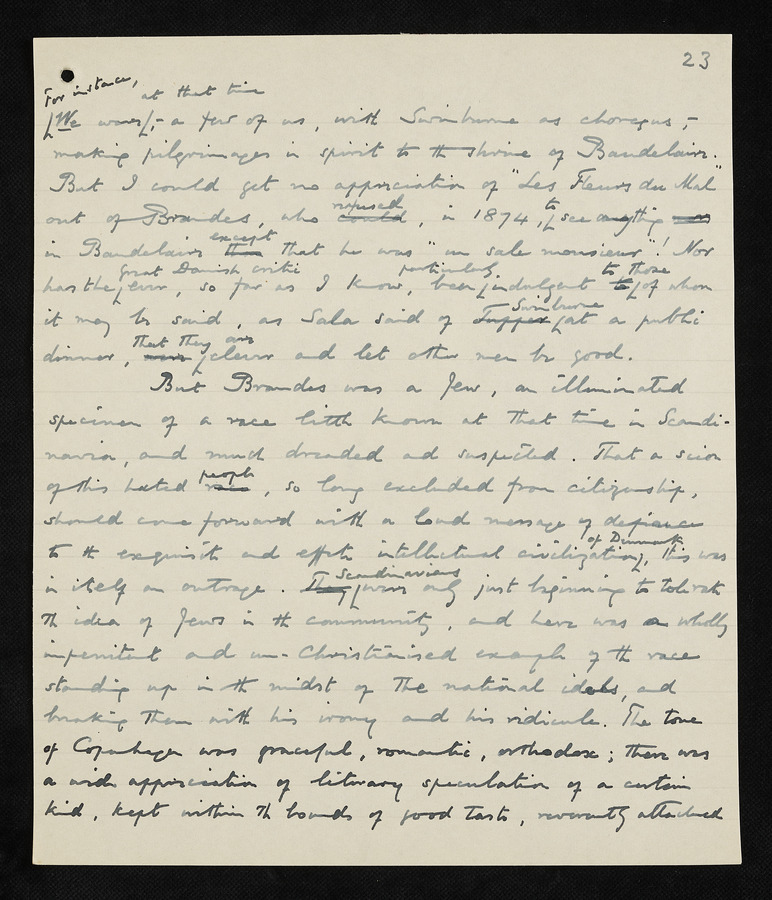 23
For instance, at that time
We were, – a few of us, with Swinburne as choregus, –
making pilgrimages in spirit to the shrine of Baudelaire.
But I could get no appreciation of "Les Fleurs du Mal"
refused to
out of Brandes, who could, in 1874, see anything
except
in Baudelaire than that he was "un sale monsieur"! Nor
great Danish critic particularly to those
has the ever, so far as I know, been indulgent to of whom
Swinburne
it may be said, as Sala said of Tupper at a public
that they are
dinner, were clever and let other men be good.
But Brandes was a Jew, an illuminated
specimen of a race little known at that time in Scandi-
navia, and much dreaded and suspected. That a scion
people
of this hated race, so long excluded from citizenship,
should come forward with a loud message of defiance
of Denmark
to the exquisite and effete intellectual civilization, this was
Scandinavians
in itself an outrage. They were only just beginning to tolerate
the idea of Jews in the community, and here was a wholly
impenitent and un-Christianised example of the race
standing up in the midst of the national idols, and
breaking them with his irony and his ridicule. The tone
of Copenhagen was graceful, romantic, orthodox; there was
a wide appreciation of literary speculation of a certain
kind, kept within the bounds of good taste, reverently attached